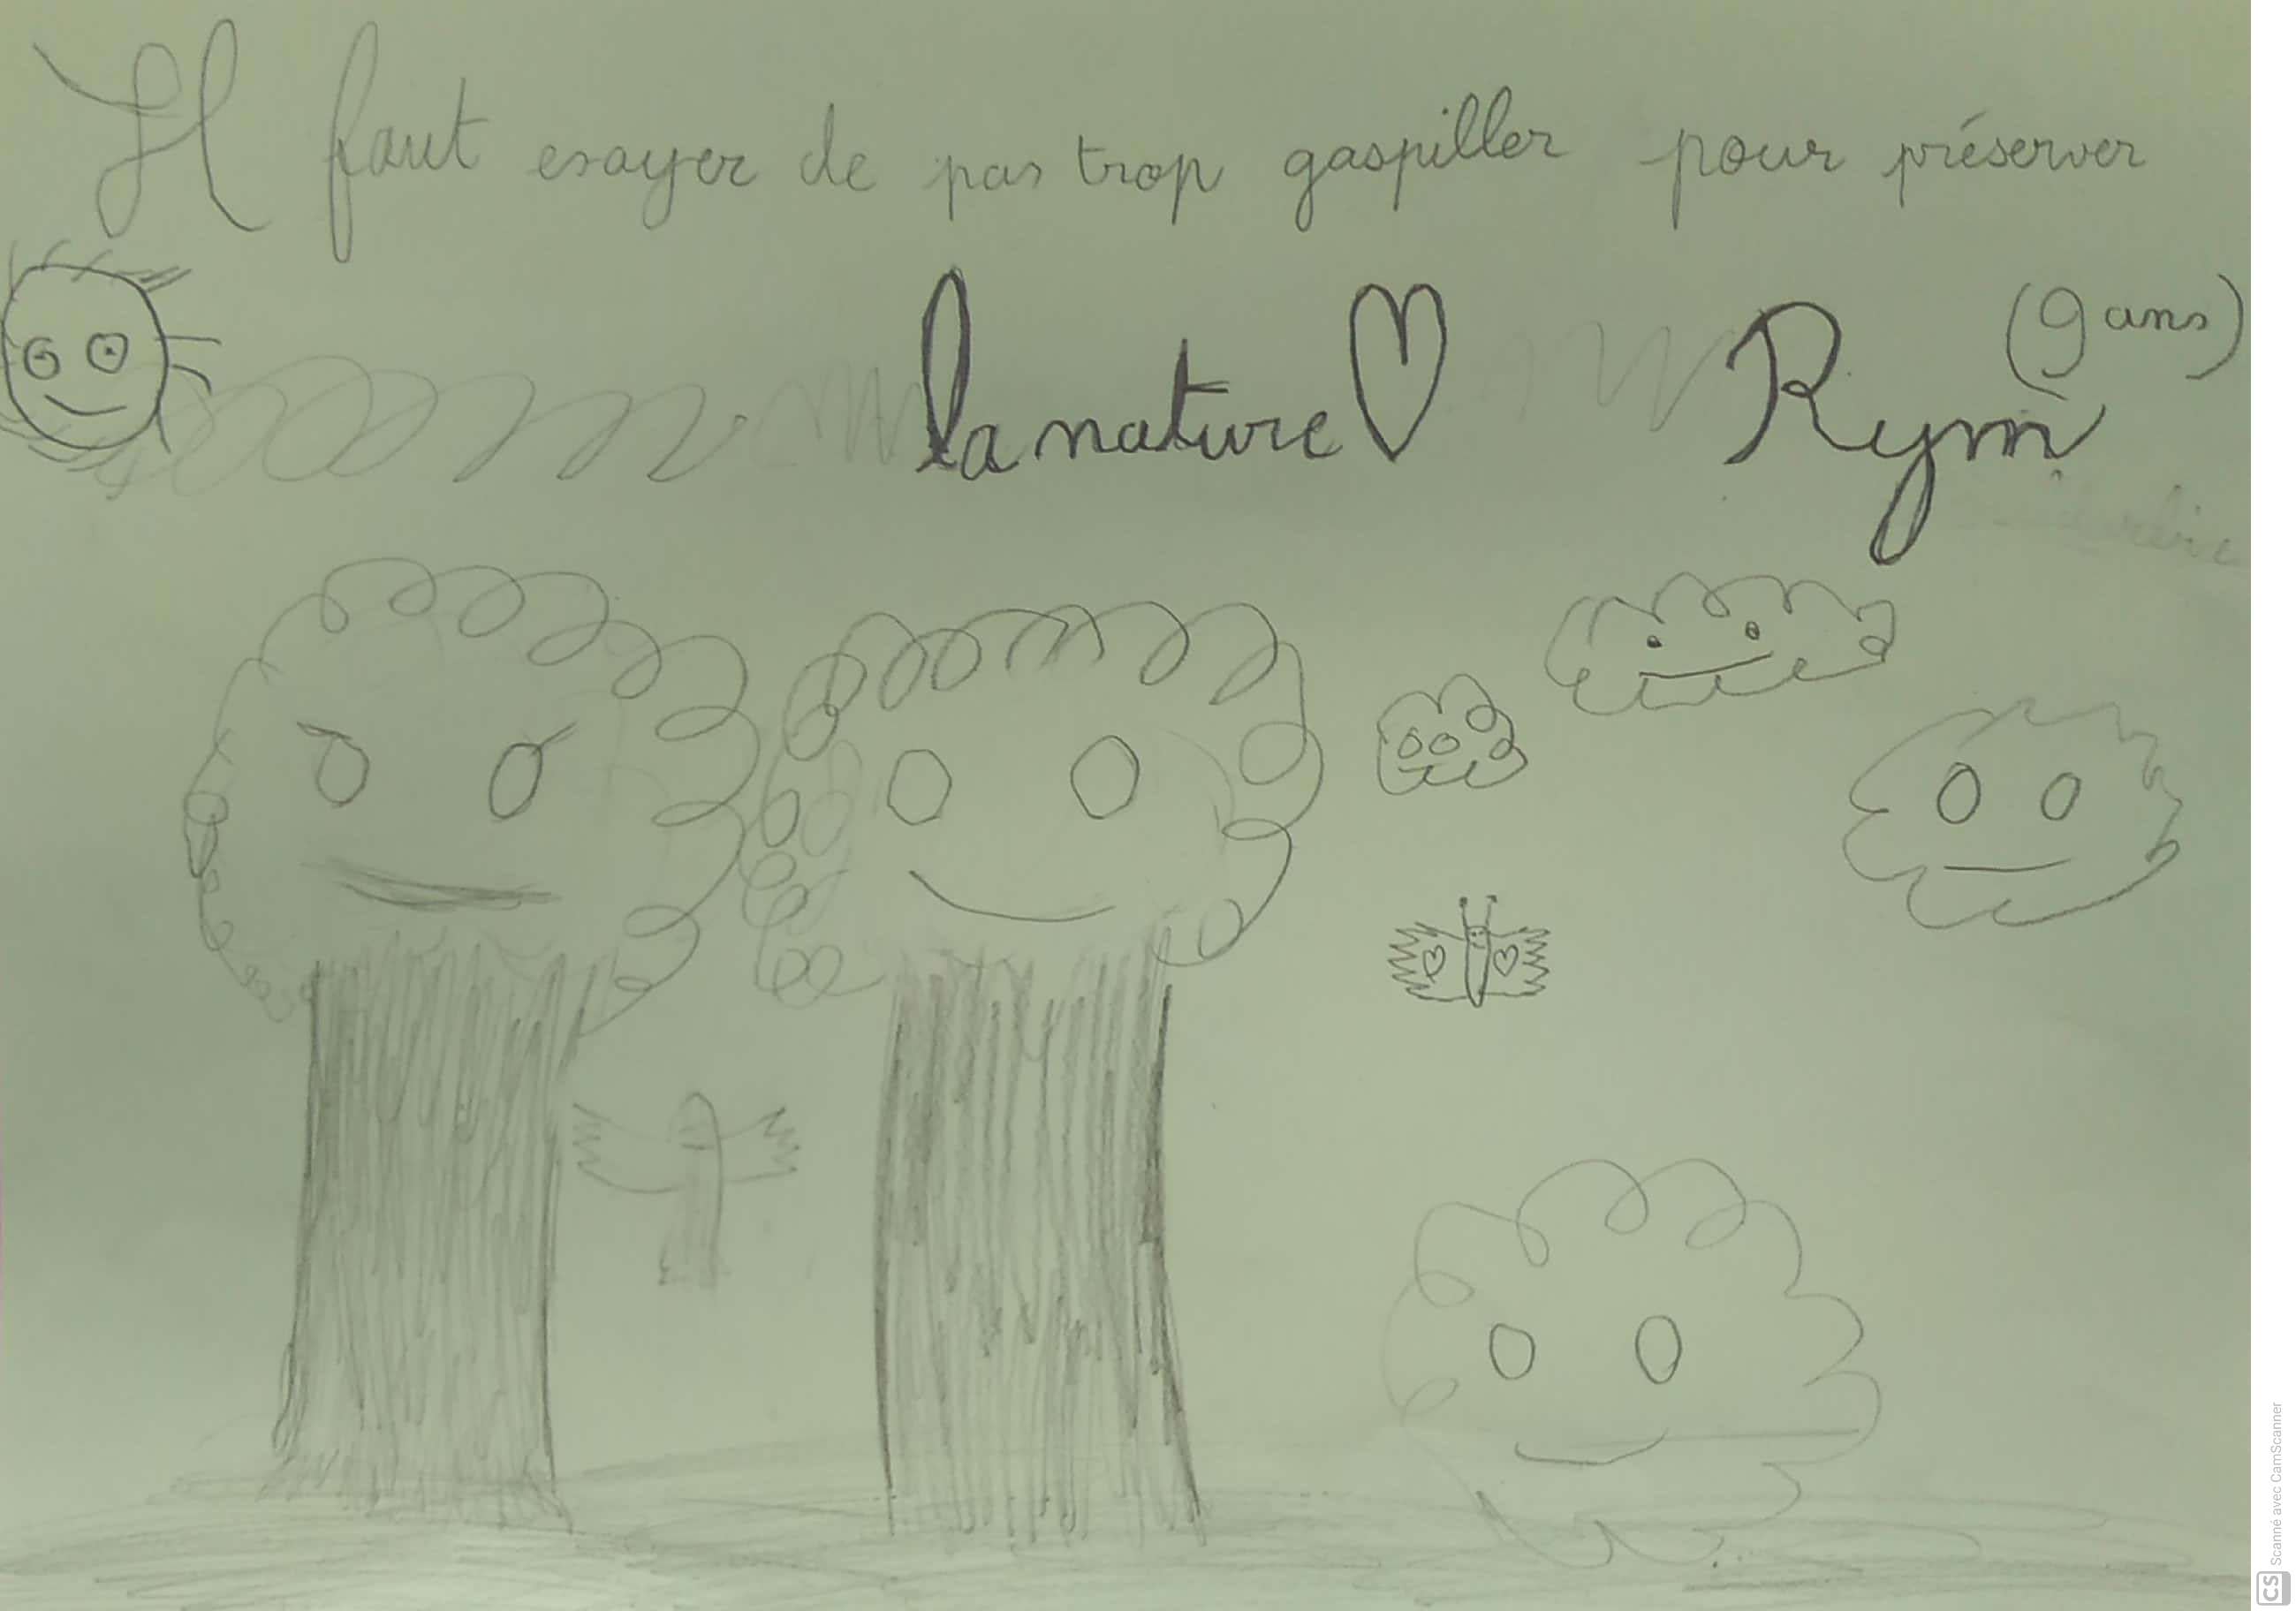 Il faut esayer de pas trop gaspiller pour préserver
la nature
Rym (9 ans)
Scanné avec CamScanner
CS